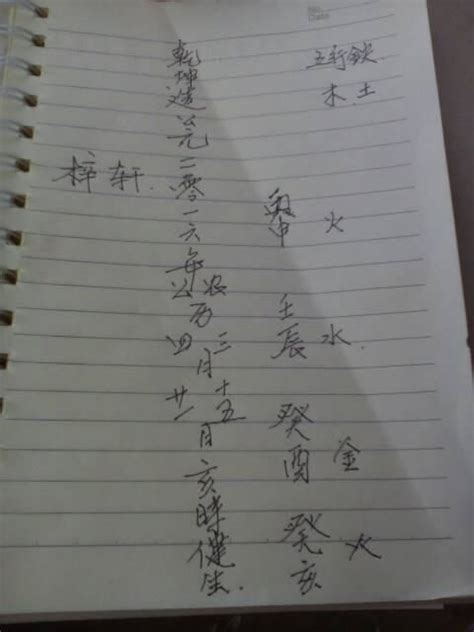 五行缺
木土
丙申 火
壬辰 水
癸酉 金
癸亥 火
乾坤造公元二零一六年
公农
历
四三
月
廿一十五
日
亥時健生
梓轩